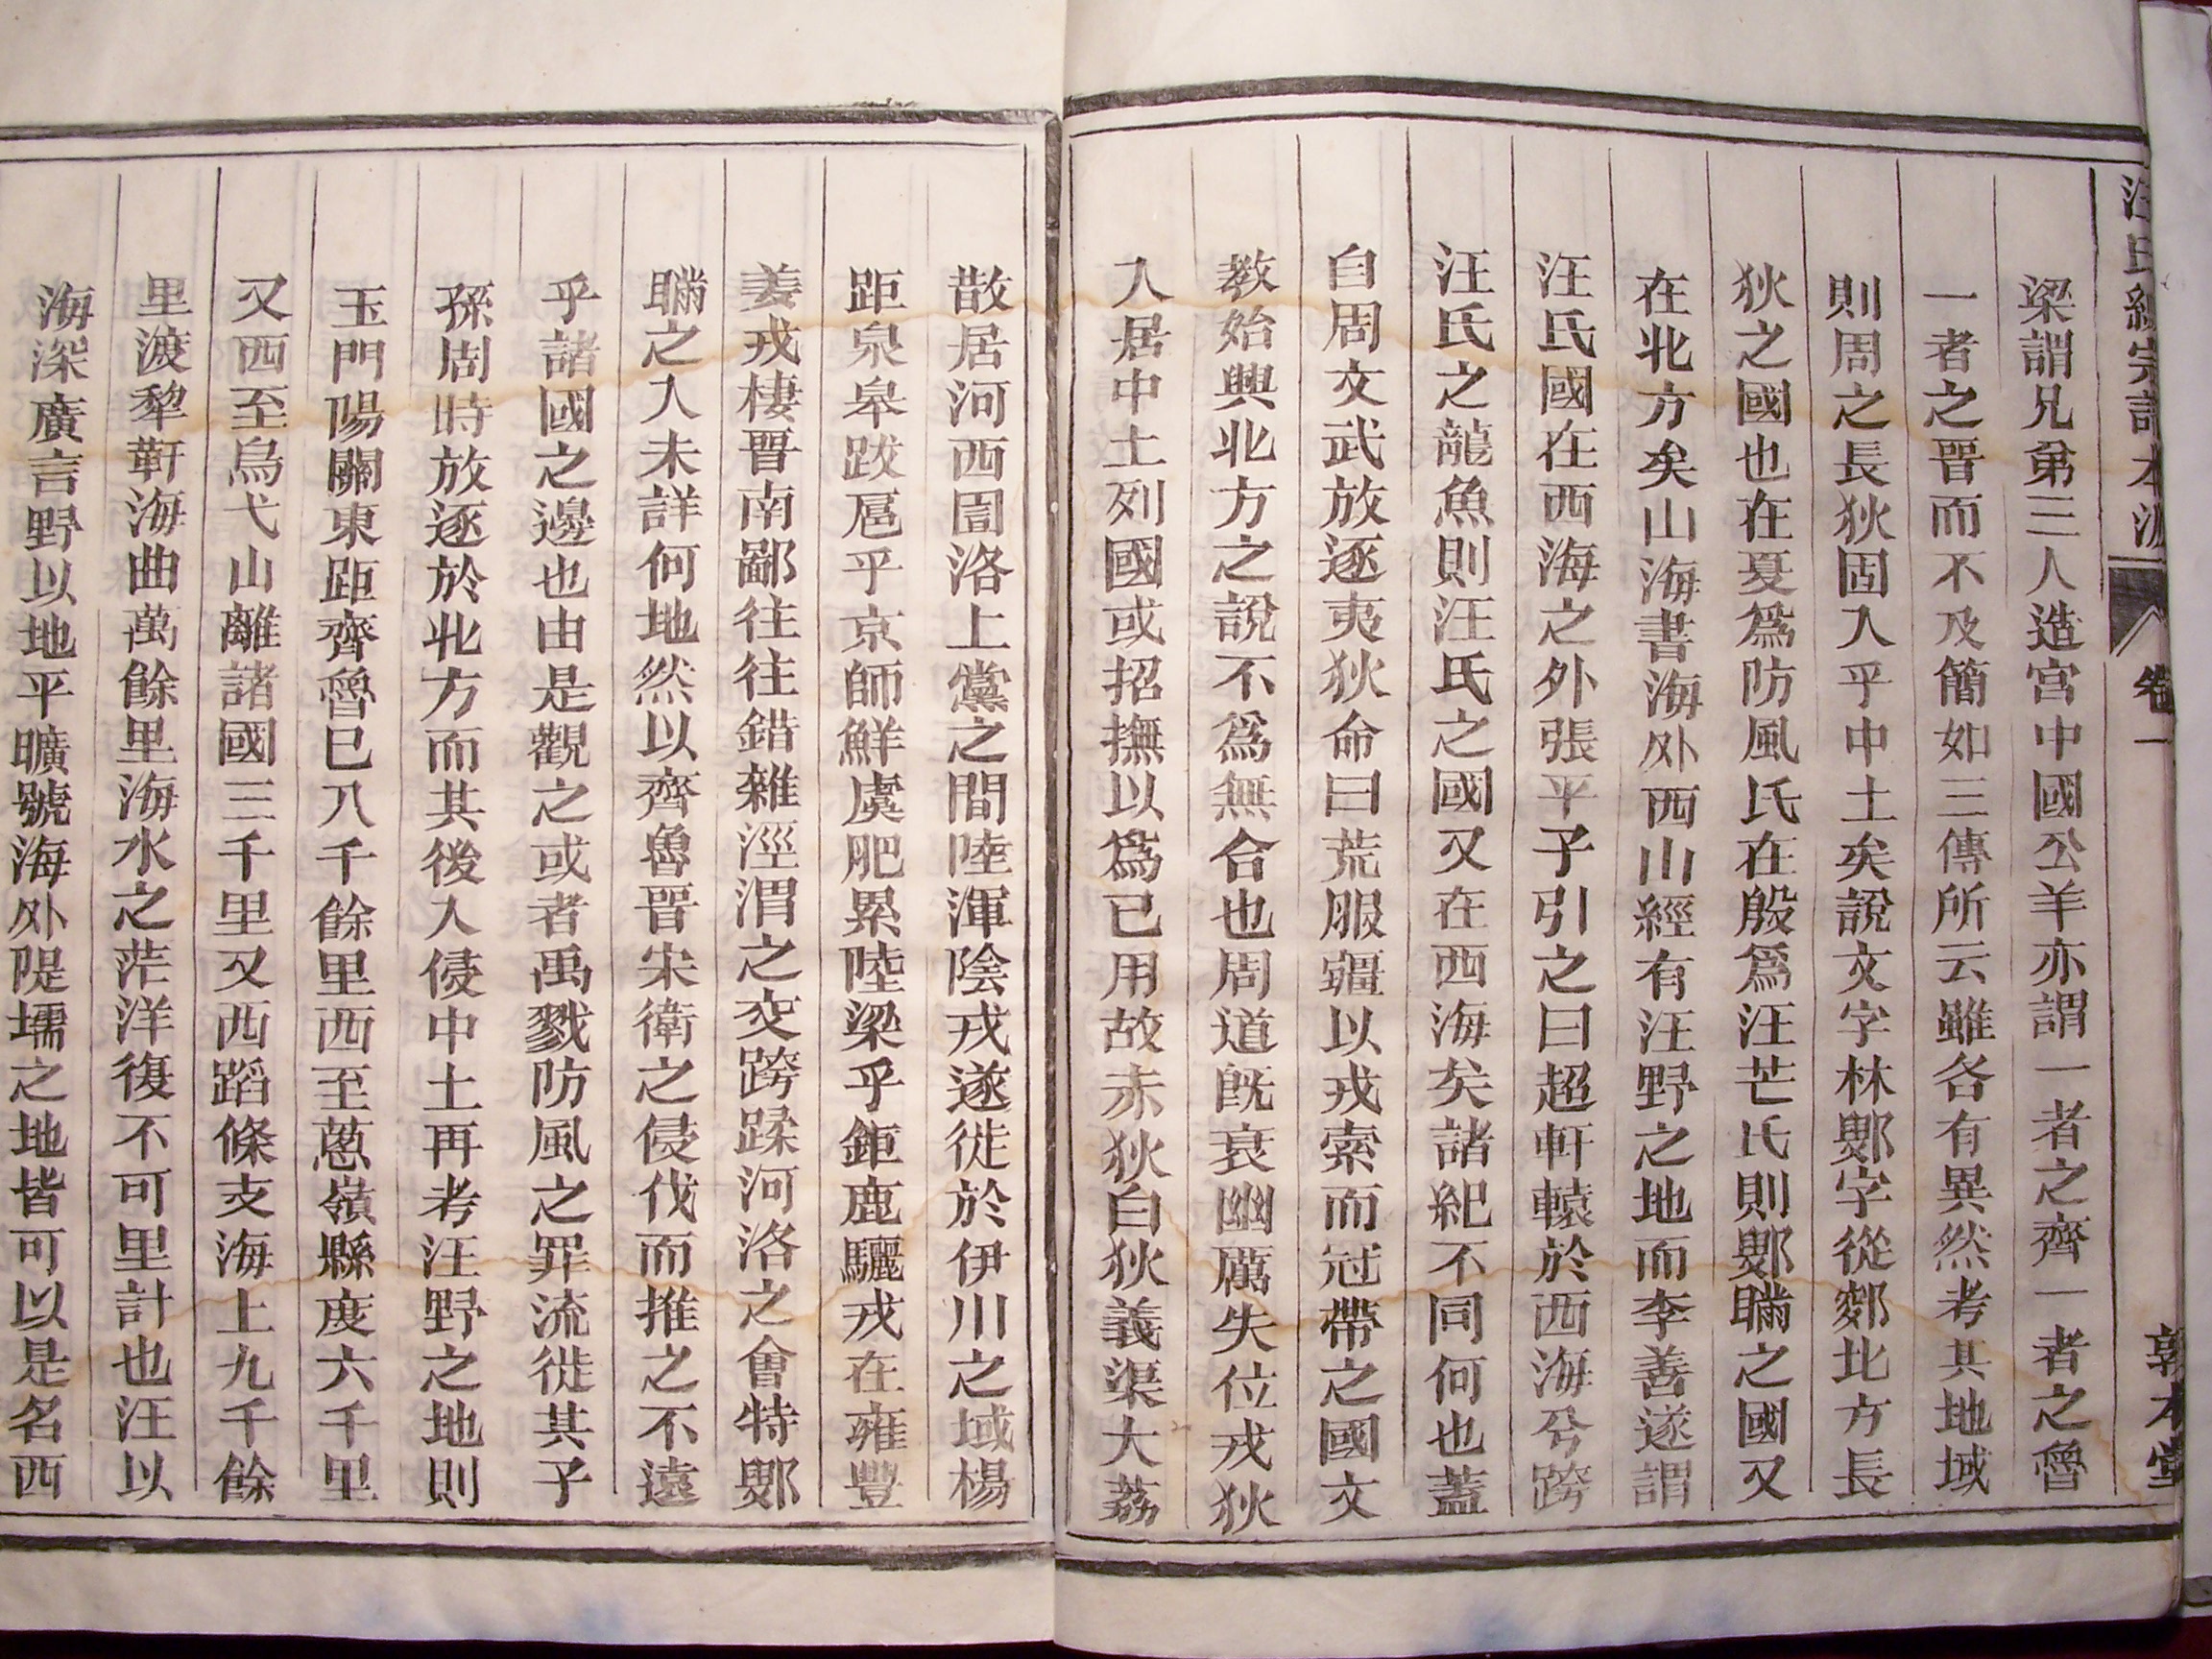 汪氏統宗譜本源 卷一 敦本堂
梁謂兄弟三人造宮中國公羊亦謂一者之齊一者之魯
一者之晉而不及簡如三傳所云雖各有異然考其地域
則周之長狄固入乎中土矣說文字林鄋字從鄋北方長
狄之國也在夏爲防風氏在殷爲汪芒氏則鄋瞞之國又
在北方矣山海書海外西山經有汪野之地而李善遂謂
汪氏國在西海之外張平子引之曰超軒轅於西海兮跨
汪氏之龍魚則汪氏之國又在西海矣諸紀不同何也蓋
自周文武放逐夷狄命曰荒服疆以戎索而冠帶之國文
教始興北方之說不爲無合也周道旣衰幽厲失位戎狄
入居中土列國或招撫以爲已用故赤狄白狄義渠大荔
散居河西圁洛上黨之間陸渾陰戎遂徙於伊川之域楊
距泉皋跋扈乎京師鮮虞肥累陸梁乎鉅鹿驪戎在雍豐
姜戎棲晉南鄙往往錯雜涇渭之交跨蹂河洛之會特鄋
瞞之入未詳何地然以齊魯晉宋衛之侵伐而推之不遠
乎諸國之邊也由是觀之或者禹戮防風之罪流徙其子
孫周時放逐於北方而其後入侵中土再考汪野之地則
玉門陽關東距齊魯已八千餘里西至蔥嶺縣度六千里
又西至烏弋山離諸國三千里又西蹈條支海上九千餘
里渡犂軒海曲萬餘里海水之茫洋復不可里計也汪以
海深廣言野以地平曠號海外隄壖之地皆可以是名西